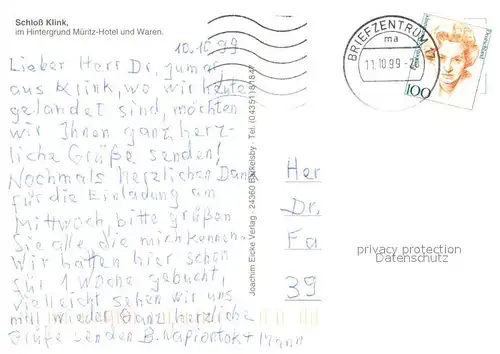 Schloß Klink,
im Hintergrund Müritz-Hotel und Waren.
10.10.99
Lieber Herr Dr.
aus Klink, wo wir heute
gelandet sind, möchten
wir Ihnen ganz herz-
liche Grüße senden!
Nochmals herzlichen Dank
für die Einladung am
Mittwoch, bitte grüßen
Sie alle, die mich kennen.
Wir hatten hier schon
für 1 Woche gebucht,
vielleicht sehen wir uns
mal wieder. Ganz herzliche
Grüße senden B. + Mann
Joachim Eicke Verlag - 24360 Barkelsby - Tel.
BRIEFZENTRUM 17
ma
11.10.99-20
100
Her
Dr.
Fa
39
privacy protection
Datenschutz